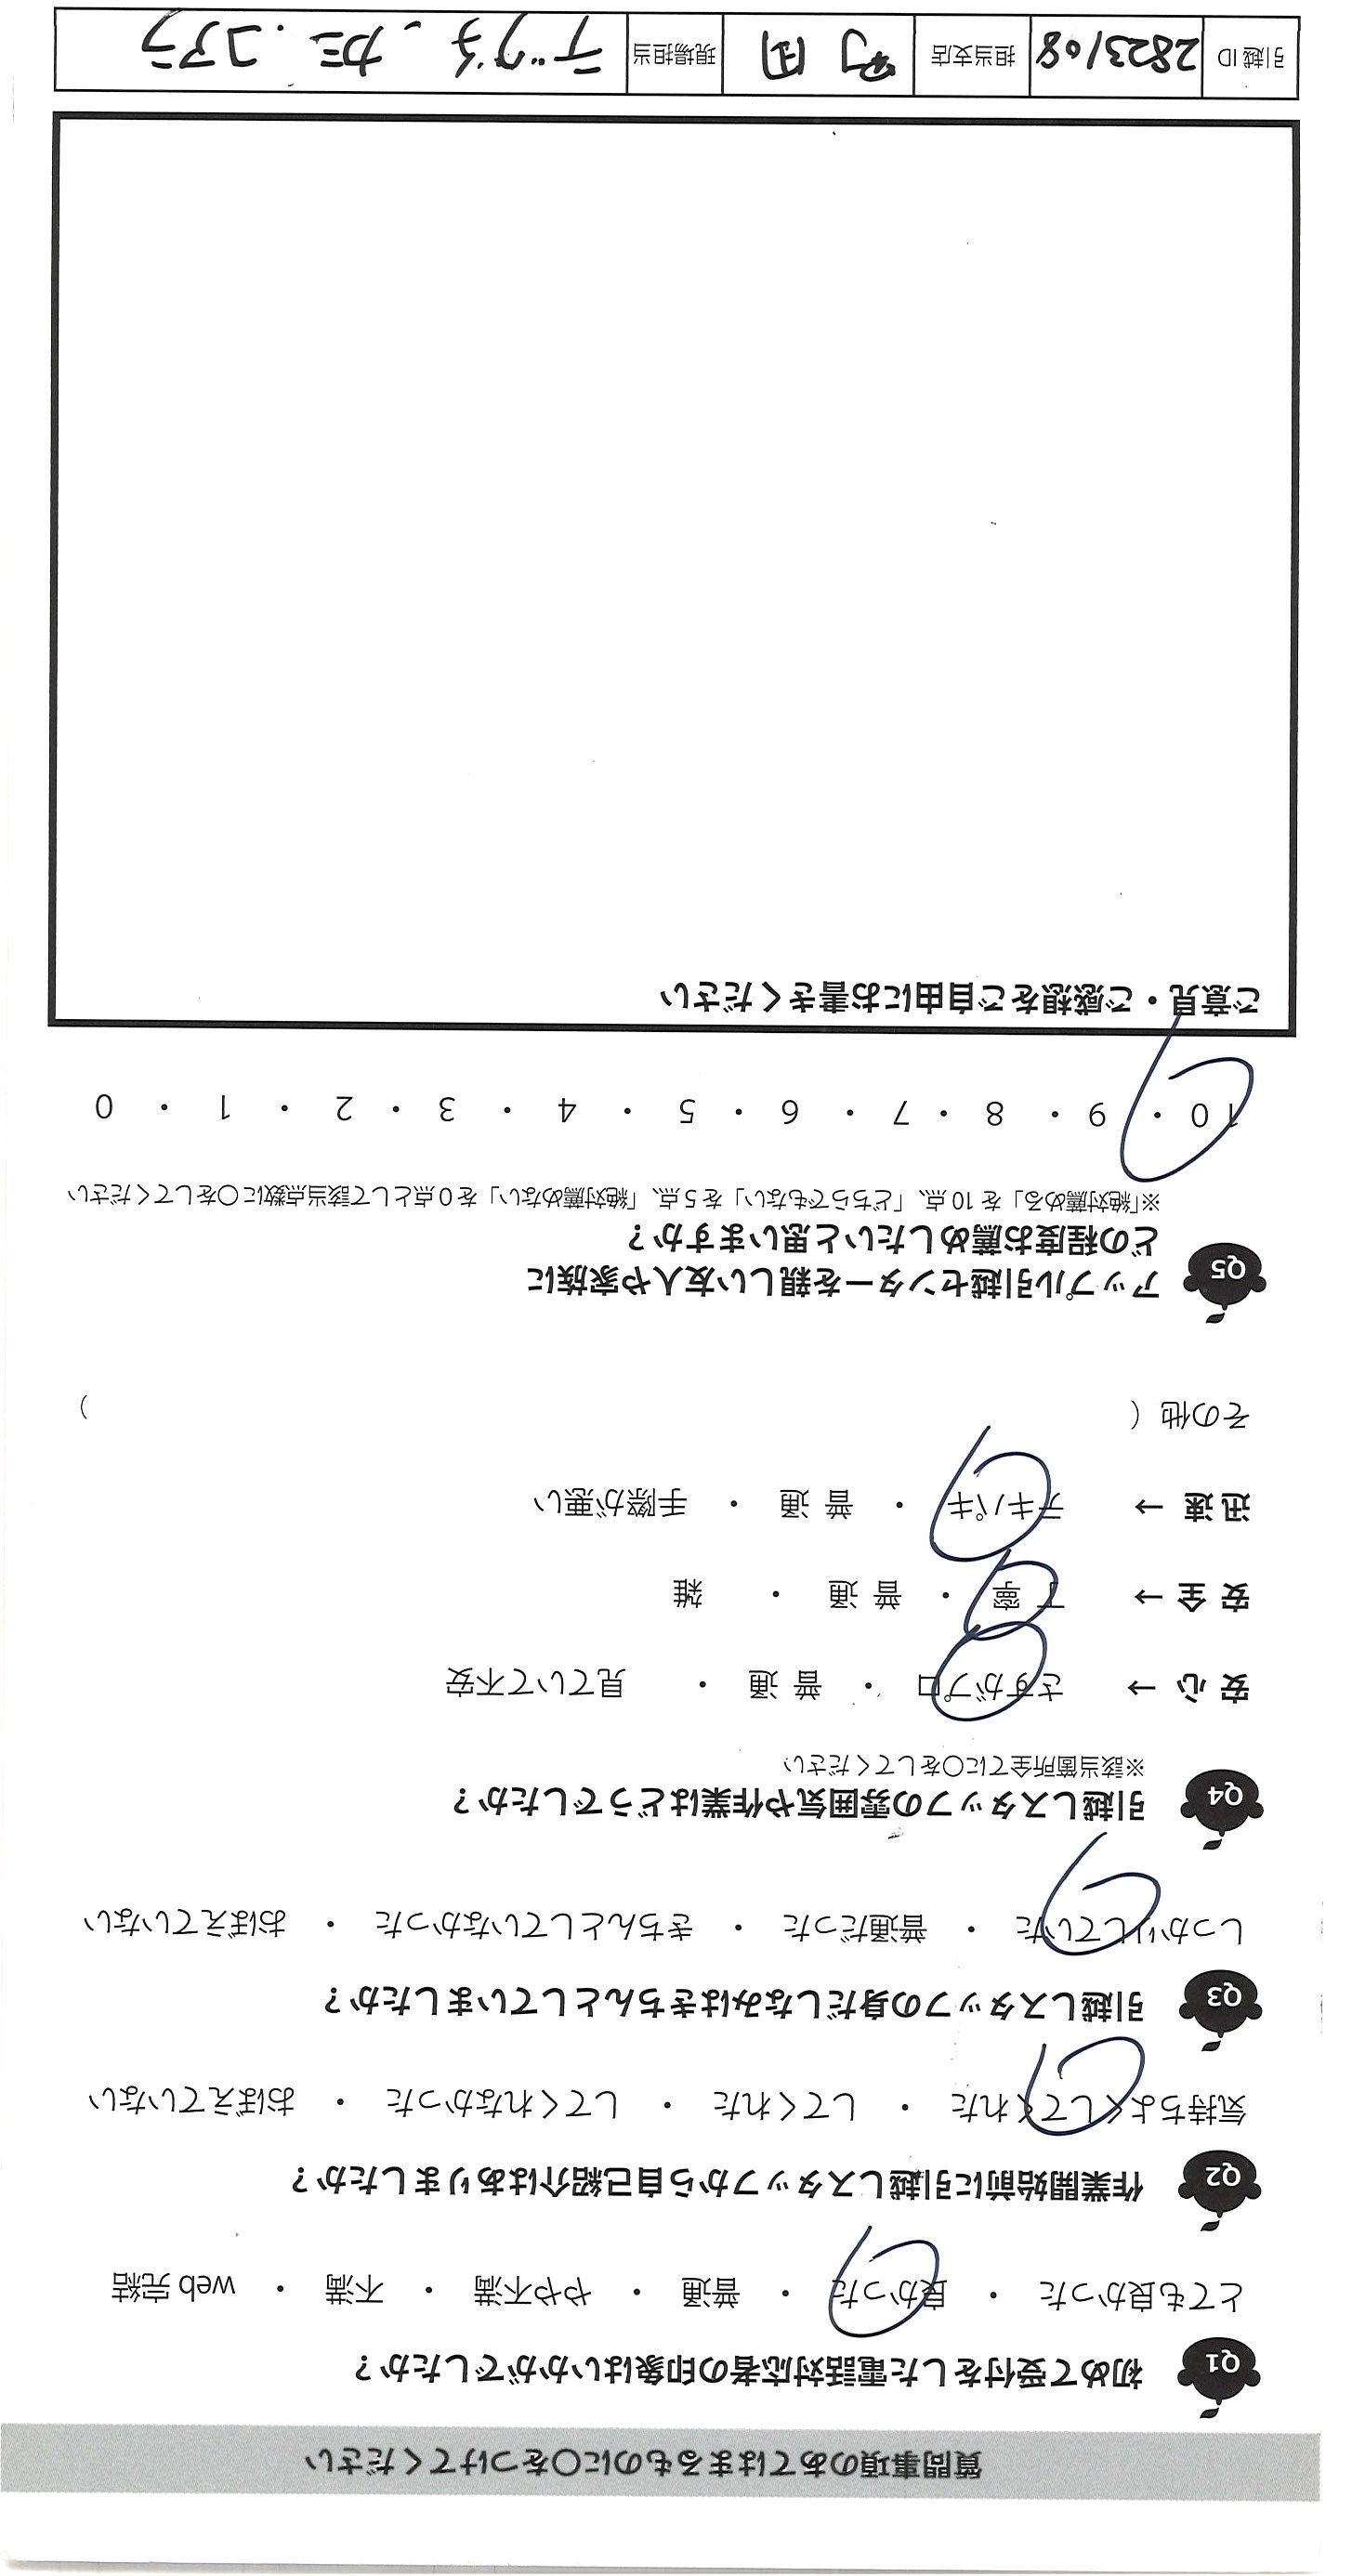 質問事項のあてはまるものに○をつけてください
Q1 初めて受付をした電話対応者の印象はいかがでしたか？
とても良かった ・ 良かった ・ 普通 ・ やや不満 ・ 不満 ・ web 完結
Q2 作業開始前に引越しスタッフから自己紹介はありましたか？
気持ちよくしてくれた ・ してくれた ・ してくれなかった ・ おぼえていない
Q3 引越しスタッフの身だしなみはきちんとしていましたか？
しっかりしていた ・ 普通だった ・ きちんとしていなかった ・ おぼえていない
Q4 引越しスタッフの雰囲気や作業はどうでしたか？
※該当箇所全てに○をしてください
安 心 → さすがプロ ・ 普 通 ・ 見ていて不安
安 全 → 丁 寧 ・ 普 通 ・ 雑
迅 速 → テキパキ ・ 普 通 ・ 手際が悪い
その他（ ）
Q5 アップル引越センターを親しい友人や家族に
どの程度お薦めしたいと思いますか？
※「絶対薦める」を 10 点、「どちらでもない」を 5 点、「絶対薦めない」を 0 点として該当点数に○をしてください
10 ・ 9 ・ 8 ・ 7 ・ 6 ・ 5 ・ 4 ・ 3 ・ 2 ・ 1 ・ 0
ご意見・ご感想をご自由にお書きください
引越 ID 2823108 担当支店 町田 現場担当 デグチ、カミ、コアラ